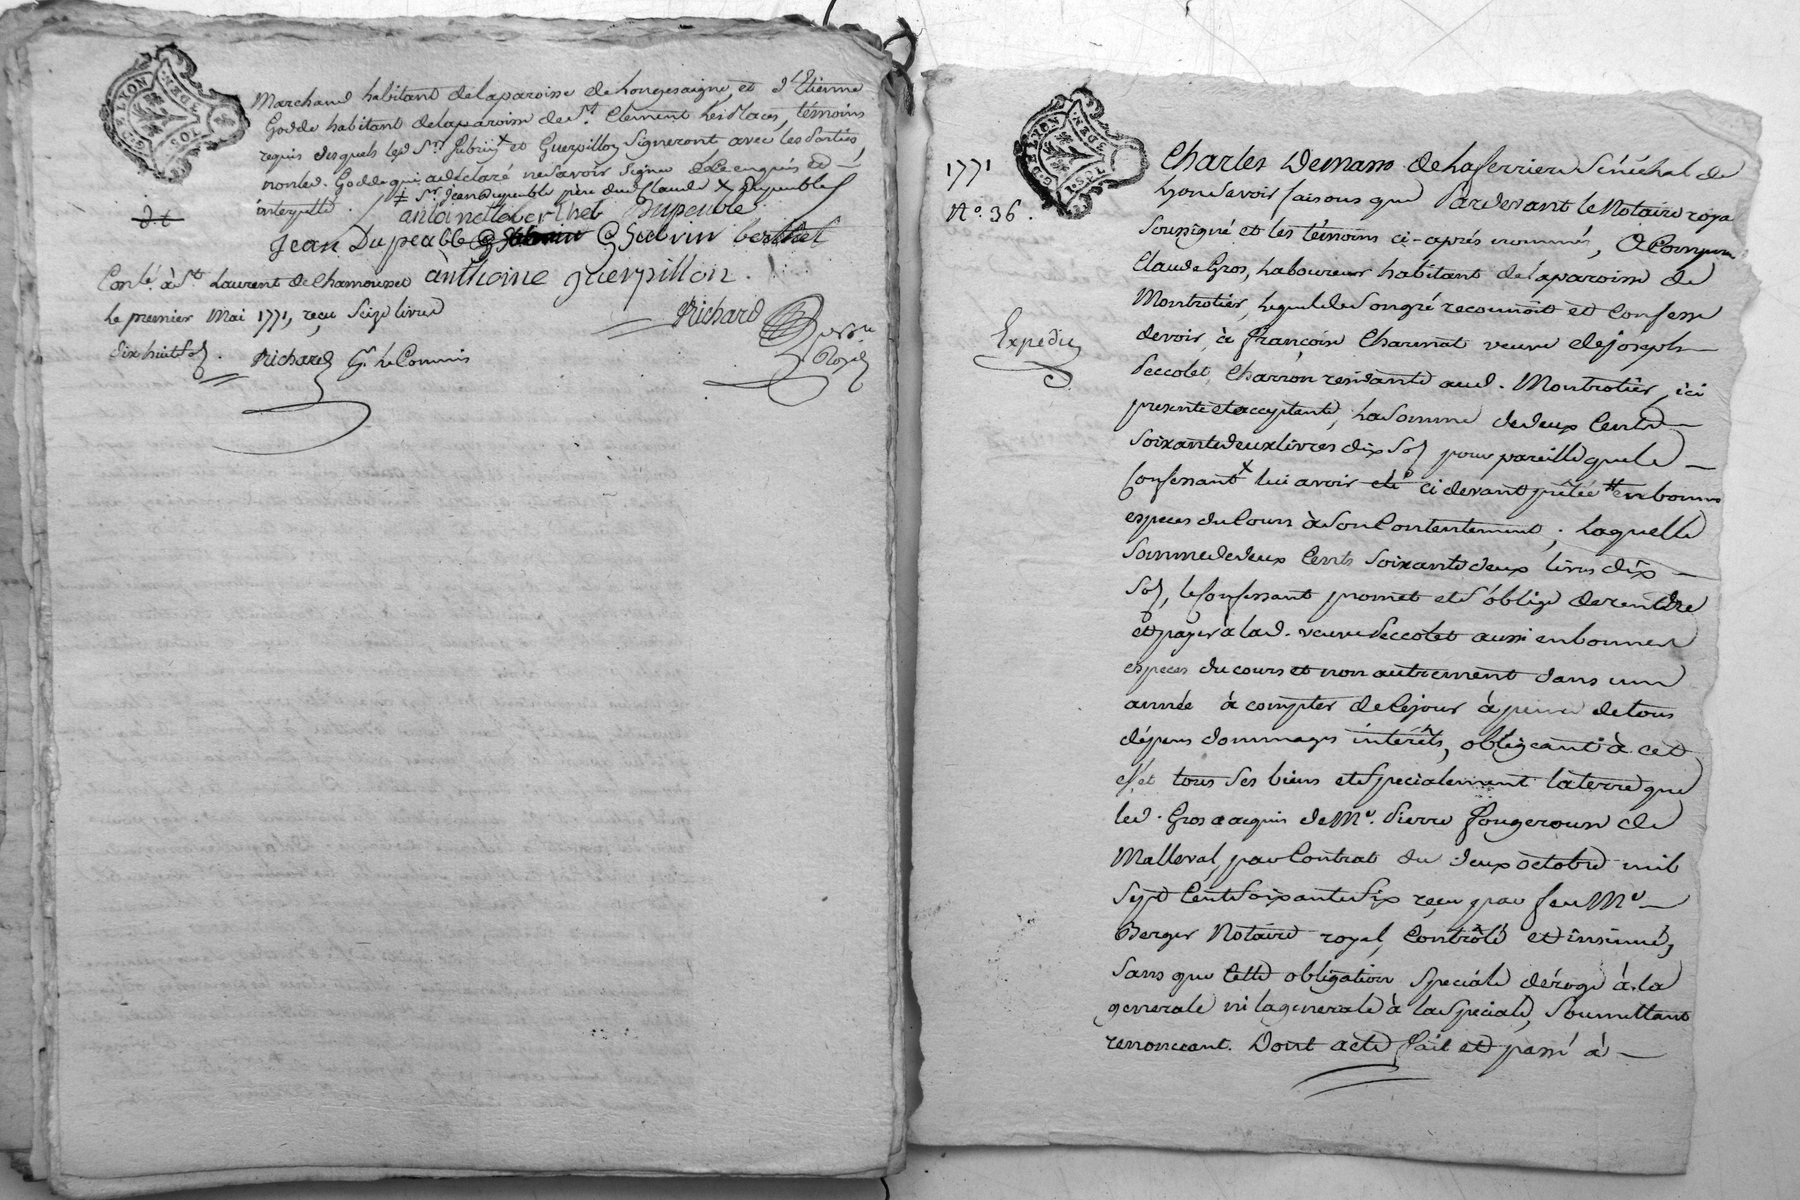 G. DE LYON
Marchand habitant delaparoisse de Longesaigne, et d'Etienne
Godde habitant delaparoisse de St. Clement les Places, témoins
requis desquels led. Sr. et Guerpillon Signeront avec les Parties,
non led. Godde qui a déclaré ne Savoir Signer de ce enquis et
interpellé. Sr. Jean Dupeuble père dud. Claude Dupeuble
antoinette berthet Dupeuble
Jean Dupeuble berthet
Conlé. à St. Laurent de Chamousset anthoine guerpillon
le premier Mai 1771, reçu Seize livres
dix huit Sols. Richard Gr. le Commis
Richard
Nore. Royal
1771
No. 36.
Expédié
G. DE LYON
1. SOL
Charles Demans De Laferriere Sénéchal de
Lyon Savoir faisons que Pardevant le Notaire royal
Soussigné et les témoins ci-après nommés, a Comparu
Claude Gros, Laboureur habitant delaparoisse de
Montrotier, lequel de Son gré reconnoit et Confesse
devoir, à françoise Charinat veuve de joseph
Peccolet, Charron residante aud. Montrotier, ici
presente et acceptante, la Somme de deux Cents
Soixante deux livres dix Sols pour pareille que le
Confessant lui avoir été ci devant prêtée en bonnes
especes du Cours à Son Contentement ; Laquelle
Somme de deux Cents Soixante deux livres dix
Sols, le Confessant promet et S'oblige de rendre
et payer à lad. veuve Peccolet aussi en bonnes
especes du cours et non autrement dans une
année à compter de Cejour à peine de tous
dépens dommages intérêts, obligeant à cet
effet tous Ses biens et Specialement la terre que
led. Gros a acquis de Me. Pierre Fougerouse de
Malleval, par Contrat du deux octobre mil
Sept Cent Soixante Six reçu par feu Me.
Berger Notaire royal, Contrôlé et insinué,
Sans que Cette obligation Spéciale déroge à la
generale ni la generale à la Speciale, Soumettant
renonceant. Dont acte fait et passé à